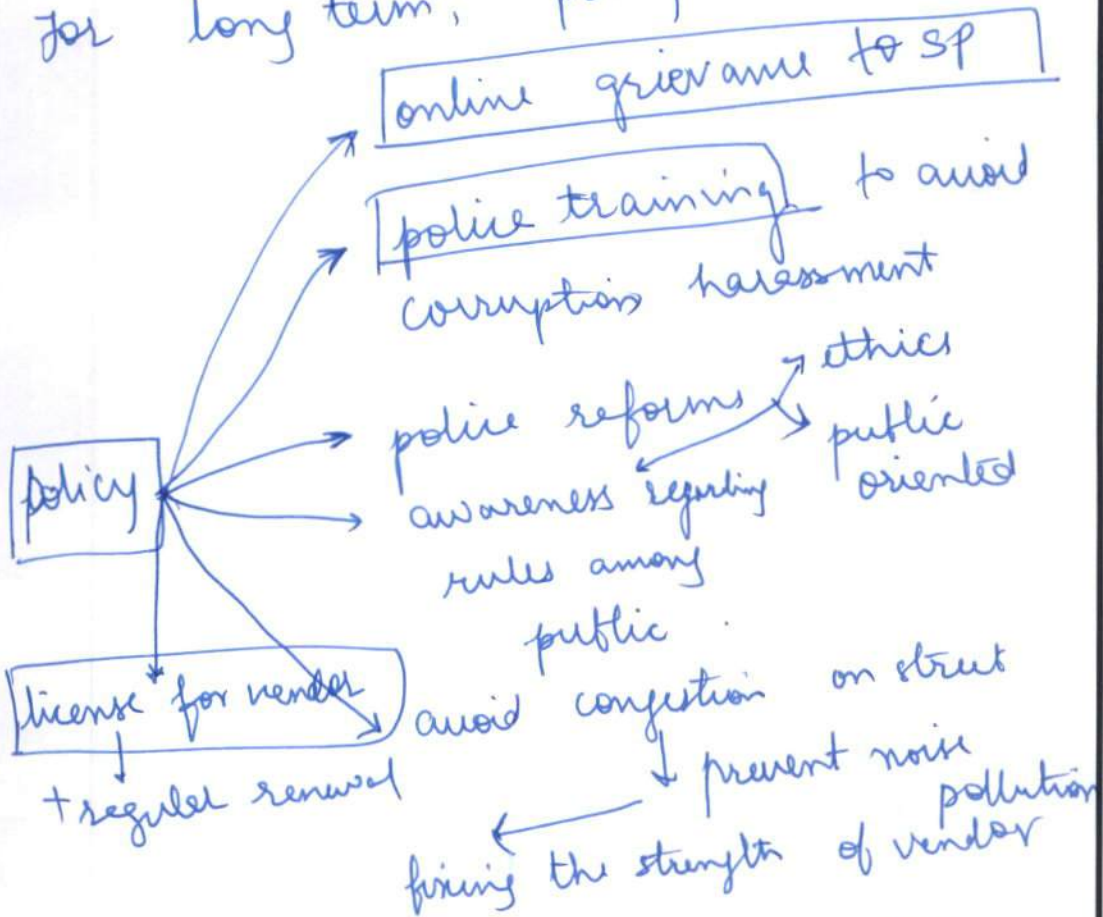 For long term,
online grievance to SP
police training to avoid
corruption harassment
police reforms
ethics
public
oriented
policy
awareness regarding
rules among
public
license for vendor
+ regular renewal
avoid congestion on street
prevent noise
pollution
fixing the strength of vendor